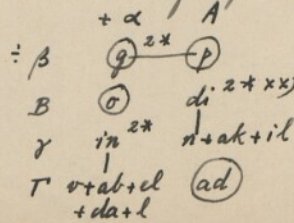 + α A
÷ β g 2* p
B o di 2* xx)
γ in 2* n+ak+il
Γ v+ab+el ad
+da+l